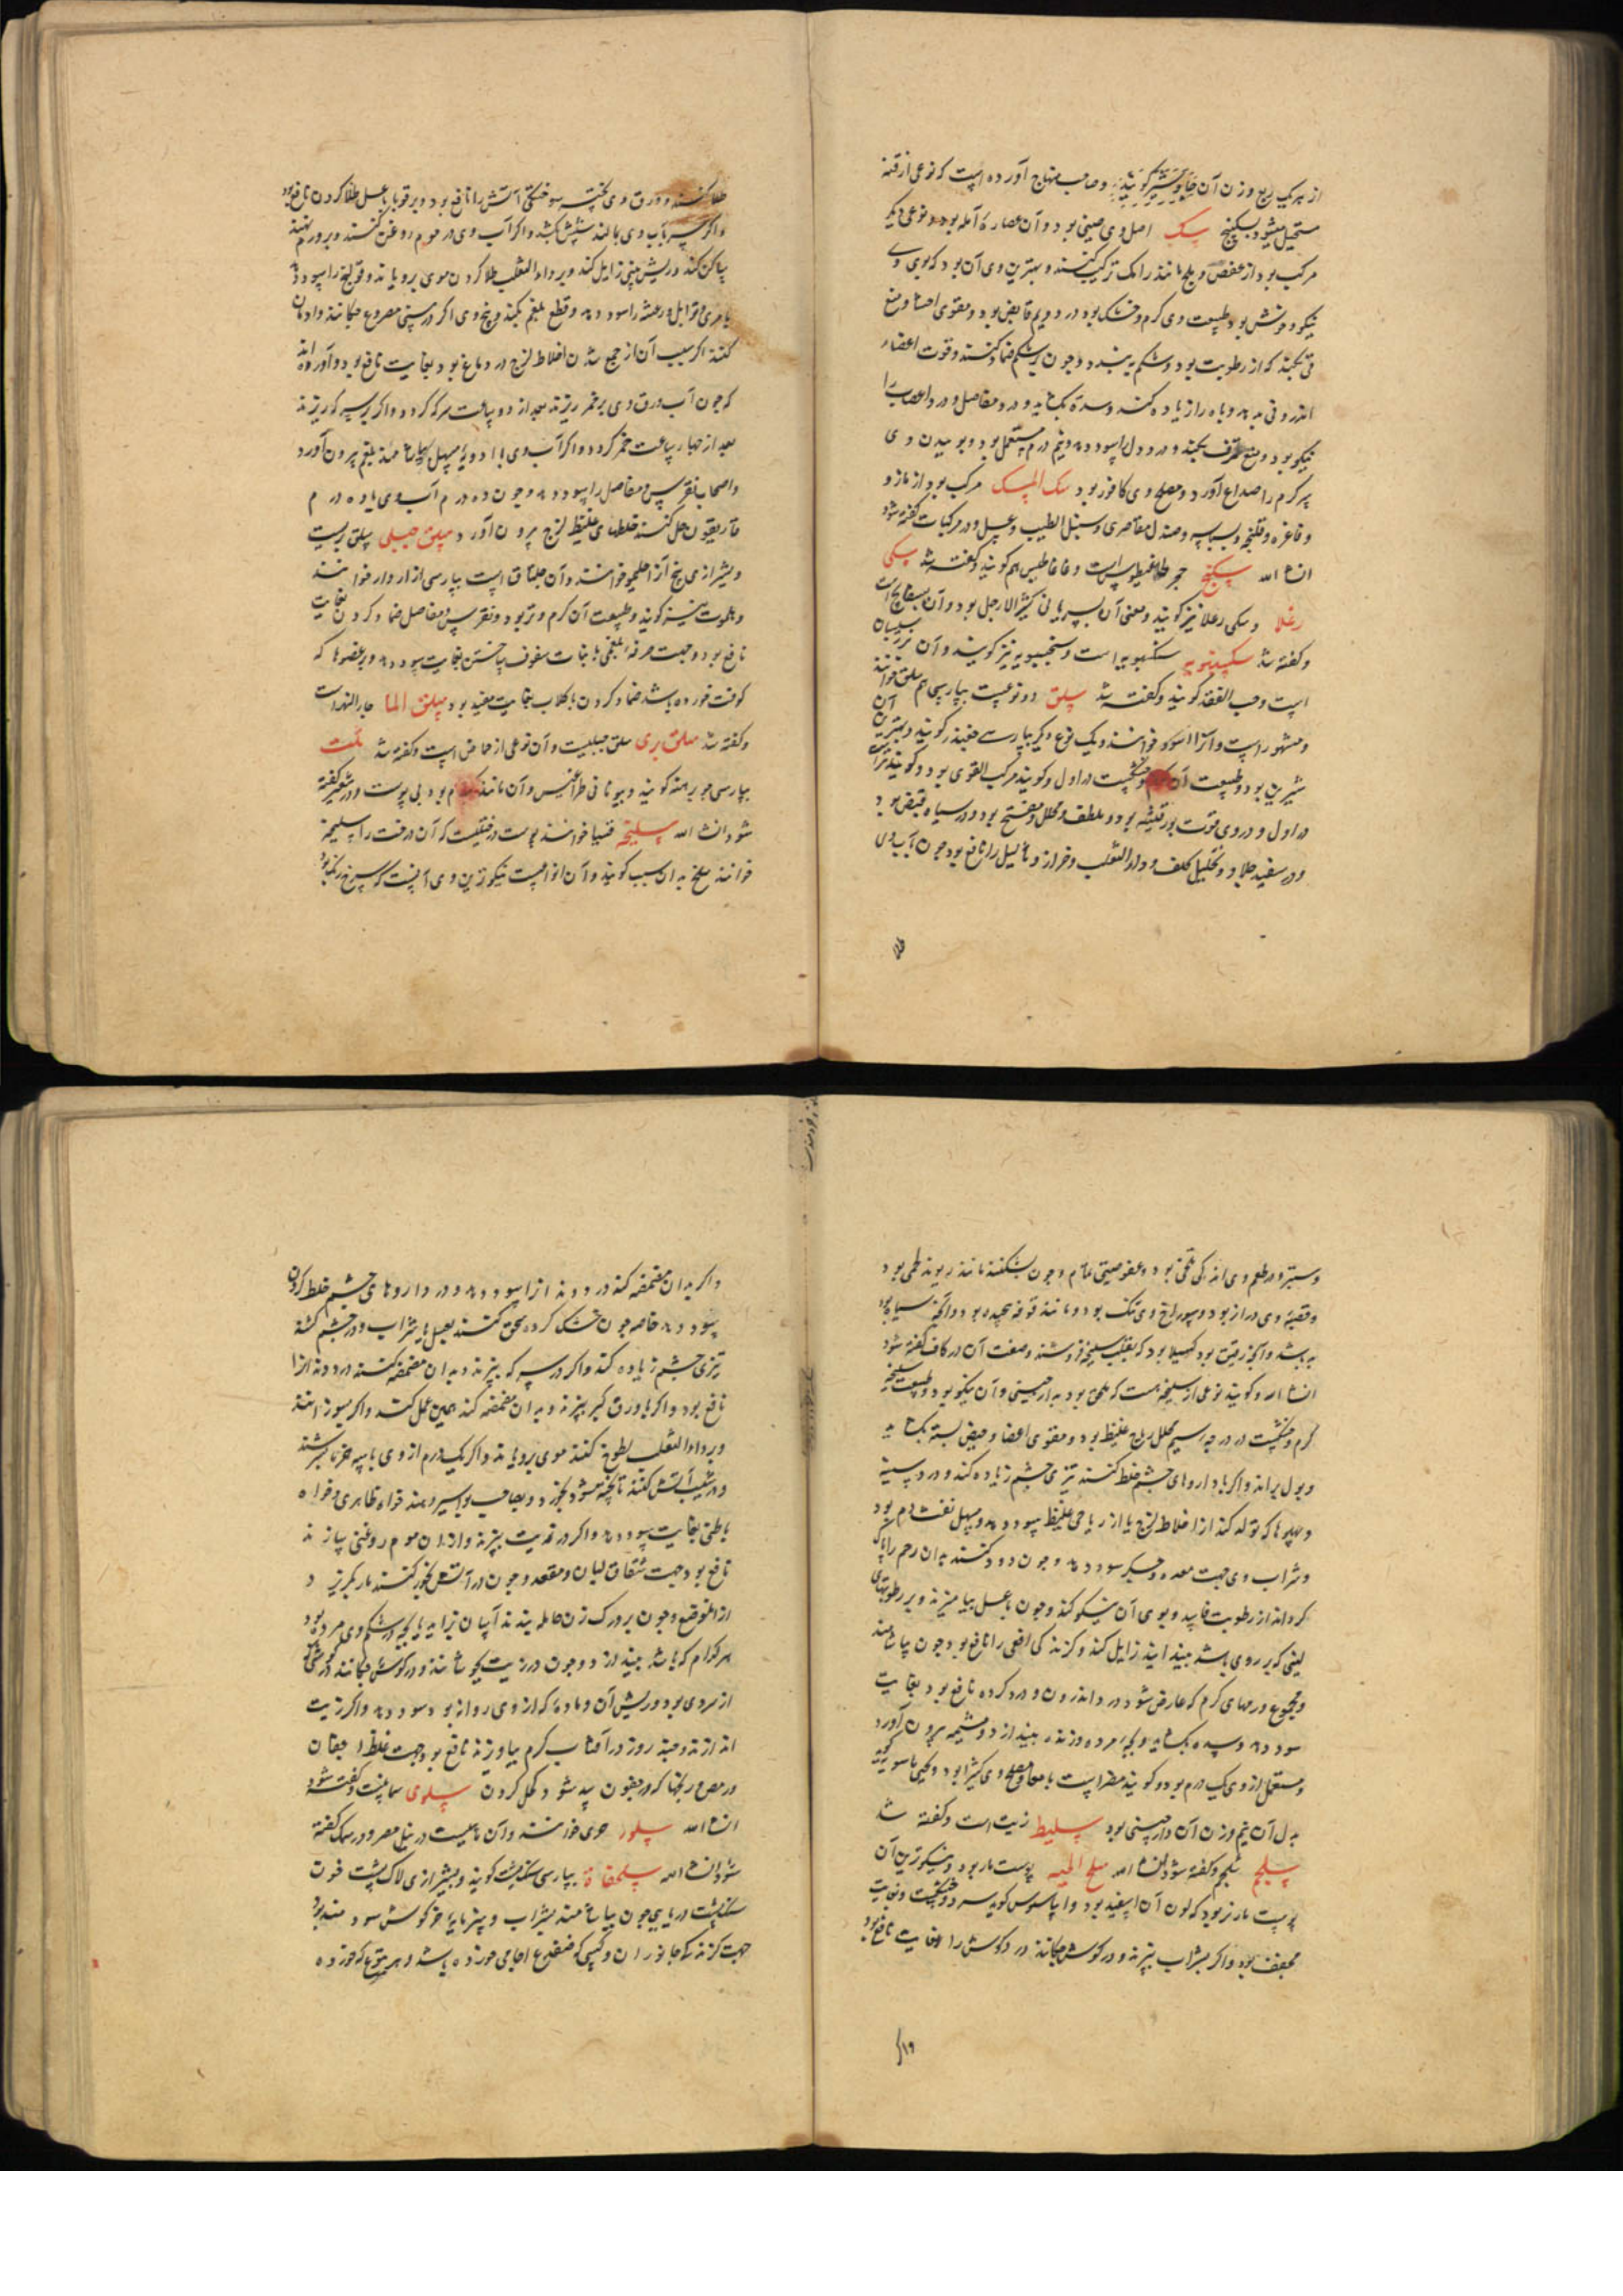 از هر یک ربع وزن آن جاوشیر گویند و صاحب منهاج آورده است که نوعی از قنه
مستحیل میشود بسکبینج سک اصل وی صینی بود و آن عصاره آمله بود و نوعی دیگر
مرکب بود از عفص و بلح مانند رامک ترکیب کنند و بهترین وی آن بود که بوی وی
نیکو و خوش بود طبیعت وی گرم و خشک بود در دویم قابض بود و مقوی احشا و منع
قی بکند که از رطوبت بود و شکم ببندد و چون بر شکم ضماد کنند و قوت اعضاء
اندرونی بدهد و باه را زیاده کند و سده بگشاید و درد مفاصل و درد اعصاب را
نیکو بود و منع عرق بکند و درد دل را سود دهد و نیم درم مستعمل بود و بوییدن وی
سر گرم را صداع آورد و مصلح وی کافور بود سک المسک مرکب بود از مازو
و فاغره و قلنجه و بسباسه و صندل مقاصری و سنبل الطیب و عسل و در مرکبات گفته شود
انشا الله سکبینج حجر طاغیطوس است و غاغاطیس هم گویند و گفته شد سکی
رغلا و سکی رعلا نیز گویند و معنی آن بسریانی کثیر الارجل بود و آن بسفایج است
و گفته شد سکبینویه سنکبویه است و سنجسبویه نیز گویند و آن بزر سیسبان
است و حب الفقد گویند و گفته شد سلق دو نوعست بپارسی هم سلق خوانند
و مشهور است و آنرا اسود خوانند و یک نوع دیگر بپارسی چغندر گویند و بهترین آن
شیرین بود و طبیعت آن گرم و خشکست در اول و گویند مرکب القوی بود و گویند تر است
در اول و در وی قوت بورقیه بود و ملطف و محلل و مفتح بود و در سیاه قبض بود
و در سفید جلا و تحلیل کلف و داء الثعلب و خراز و ثآلیل را نافع بود چون آب وی
طلا
طلا کنند و ورق وی پخته سوختگی آتش را نافع بود و بر قوبا با عسل طلا کردن نافع بود
و اگر سر بآب وی بمالند شپش بکشد و اگر آب وی در موم روغن کنند و بر ورم نهند
ساکن کند و ریش بینی زایل کند و بر داء الثعلب طلا کردن موی برویاند و قولنج را سود دهد
با مری و توابل و رعشه را سود دهد و قطع بلغم بکند و بیخ وی اگر در بینی مصروع چکانند و ادمان
کنند اگر سبب آن از جمع شدن اخلاط لزج در دماغ بود بغایت نافع بود و آورده اند
که چون آب ورق وی بر خمر ریزند بعد از دو ساعت سرکه گردد و اگر بر سرکه ریزند
بعد از چهار ساعت خمر گردد و اگر آب وی با ادویه مسهل بیاشامند بلغم بیرون آورد
و اصحاب نقرس و مفاصل را سود دهد و چون ده درم آب وی با ده درم
غاریقون حل کنند خلطهای غلیظ لزج بیرون آورد سلق جبلی سلق بریست
و شیرازی بیخ آنرا حلیمو خوانند و آن حلماق است بپارسی از اروار خوانند
و بلموت نیز گویند و طبیعت آن گرم و تر بود و نقرس و مفاصل ضماد کردن بغایت
نافع بود و جهت حرقه البلغمی با نبات سفوف ساختن بغایت سود دهد و بر عضوها که
کوفت خورده باشد ضماد کردن با گلاب بغایت مفید بود سلق الما جار النهر است
و گفته شد سلق بری سلق جبلیست و آن نوعی از حماض است و گفته شد سلت
بپارسی جو برهنه گویند و بیونانی طراغیس و آن مانند گندم بود بی پوست و در شعیر گفته
شود انشا الله سلیخه قسیا خوانند پوست درختیست که آن درخت را سلیخه
خوانند سلخ بدان سبب گویند و آن انواعست نیکوترین وی آنست که سرخ رنگ بود
و ستبر و در طعم وی اندکی تلخی بود و عفوصیتی تمام و چون بشکنند مانند ریوند لحمی بود
و قصبه وی دراز بود و سوراخ وی تنگ بود و مانند قرفه پیچیده بود و آنچه سیاه بود
بد باشد و آنچه رقیق بود کسیلا بود که بقلب سلیخه فروشند و صفت آن در کاف گفته شود
انشا الله و گویند نوعی از سلیخه هست که ملحق بود بدارچینی و آن نیکو بود و طبیعت سلیخه
گرم و خشکست در درجه سیم محلل ریاح غلیظ بود و مقوی اعضا و حیض بسته بگشاید
و بول براند و اگر با داروهای چشم خلط کنند تیزی چشم زیاده کند و درد سینه
و پهلوها که تولد کند از اخلاط لزج یا از ریاحی غلیظ سود دهد و مسهل نفث دم بود
و شراب وی جهت معده و جگر سود دهد و چون دود کنند بدان رحم را پاک
گرداند از رطوبت فاسد و بوی آن نیکو کند و چون با عسل بیامیزند و بر رطوبتهای
لبنی که بر روی باشد ببندایند زایل کند و گزندگی افعی را نافع بود چون بیاشامند
و مجموع ورمهای گرم که عارض شود در اندرون و درد گرده نافع بود بغایت
سود دهد و سده بگشاید و بچه مرده و زنده بیندازد و مشیمه بیرون آورد
و مستعمل از وی یک درم بود و گویند مضر است بامعا و مصلح وی کثیرا بود و یحیی ماسویه گوید
بدل آن نیم وزن آن دارچینی بود سلیط زیت است و گفته شد
سلجم شلجم و گفته شود انشا الله سلخ الحیه پوست مار بود و نیکوترین آن
پوست مار نر بود که لون آن سفید بود و ایاسوس گوید سرد و خشکست و بغایت
مجفف بود و اگر بشراب بپزند و در گوش چکانند درد گوش را بغایت نافع بود
۱۹
و اگر بدان مضمضه کند درد دندانرا سود دهد و در داروهای چشم خلط کردن
سود دهد خاصه چون خشک کرده سحق کنند بعسل یا شراب و در چشم کشند
تیزی چشم زیاده کند و اگر در سرکه بپزند و بدان مضمضه کنند درد دندانرا
نافع بود و اگر با ورق کبر بپزند و بدان مضمضه کند همین عمل کند و اگر بسوزانند
و بر داء الثعلب لطوخ کنند موی برویاند و اگر یک درم از وی با سه خرما بسرشند
و در شیب آتش کنند تا پخته شود بخورد صاحب بواسیر دهند خواه ظاهری و خواه
باطنی بغایت سود دهد و اگر در زیت بپزند و ازان موم روغنی سازند
نافع بود جهت شقاق لبان و مقعد و چون در آتش بخور کنند مار بگریزد
از انموضع و چون بر ورک زن حامله بندند آسان بزاید یا بچه در شکم وی مرده بود
هر کدام که باشد بیندازد و چون در زیت بجوشانند و در گوش چکانند
از سردی بود و ریش آن و ماده که از وی روانه بود سود دهد و اگر زیت
اندازند و چند روز در آفتاب گرم بیاویزند نافع بود جهت غلظ اجفان
و مصرع ریختها که در جفون پدید شود کحل کردن سلوی سمانیست و گفته شود
انشا الله سلور جری خوانند و آن ماهیست در نیل مصر و در سمک گفته
شود انشا الله سلحفاة بپارسی سنگ پشت گویند و بشیرازی لاک پشت خون
سنگ پشت دریایی چون بیاشامند بشراب و پنیرمایه خرگوش سودمند بود
جهت گزندگی جانوران و کسی که ضفدع اجامی خورده باشد و هر